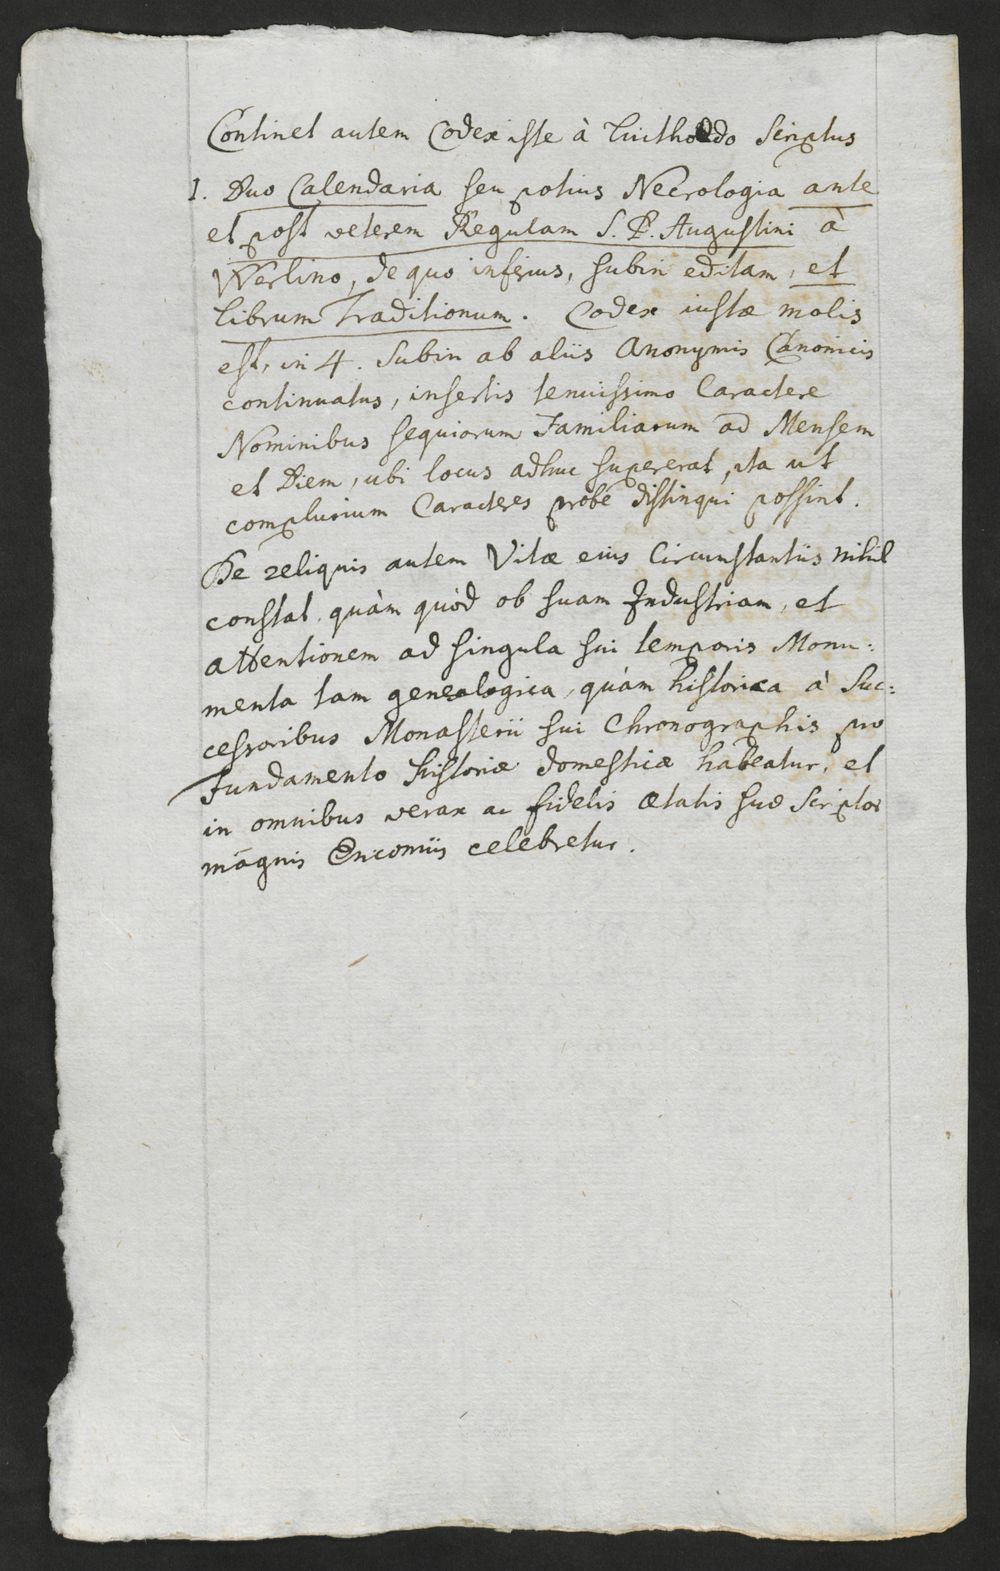 Continet autem Codex iste à Luitholdo Scriptus
1. Duo Calendaria seu potius Necrologia ante
et post veterem Regulam S. P. Augustini à
Werlino, de quo inferius, subin editam, et
librum Traditionum. Codex iustæ molis
est, in 4. Subin ab aliis Anonymis Canonicis
continuatus, insertis tenuissimo Caractere
Nominibus sequiorum Familiarum ad Mensem
et Diem, ubi locus adhuc supererat, ita ut
complurium Caracteres probè distinqui possint.
De reliquis autem Vitæ eius Circumstantiis nihil
constat, quàm quòd ob suam Industriam, et
attentionem ad singula sui temporis Monu:
menta tam genealogica, quàm historica à Suc:
cessoribus Monasterii sui Chronographis pro
Fundamento Historiæ domesticæ habeatur, et
in omnibus verax ac fidelis ætatis suæ Scriptor
magnis Encomiis celebretur.